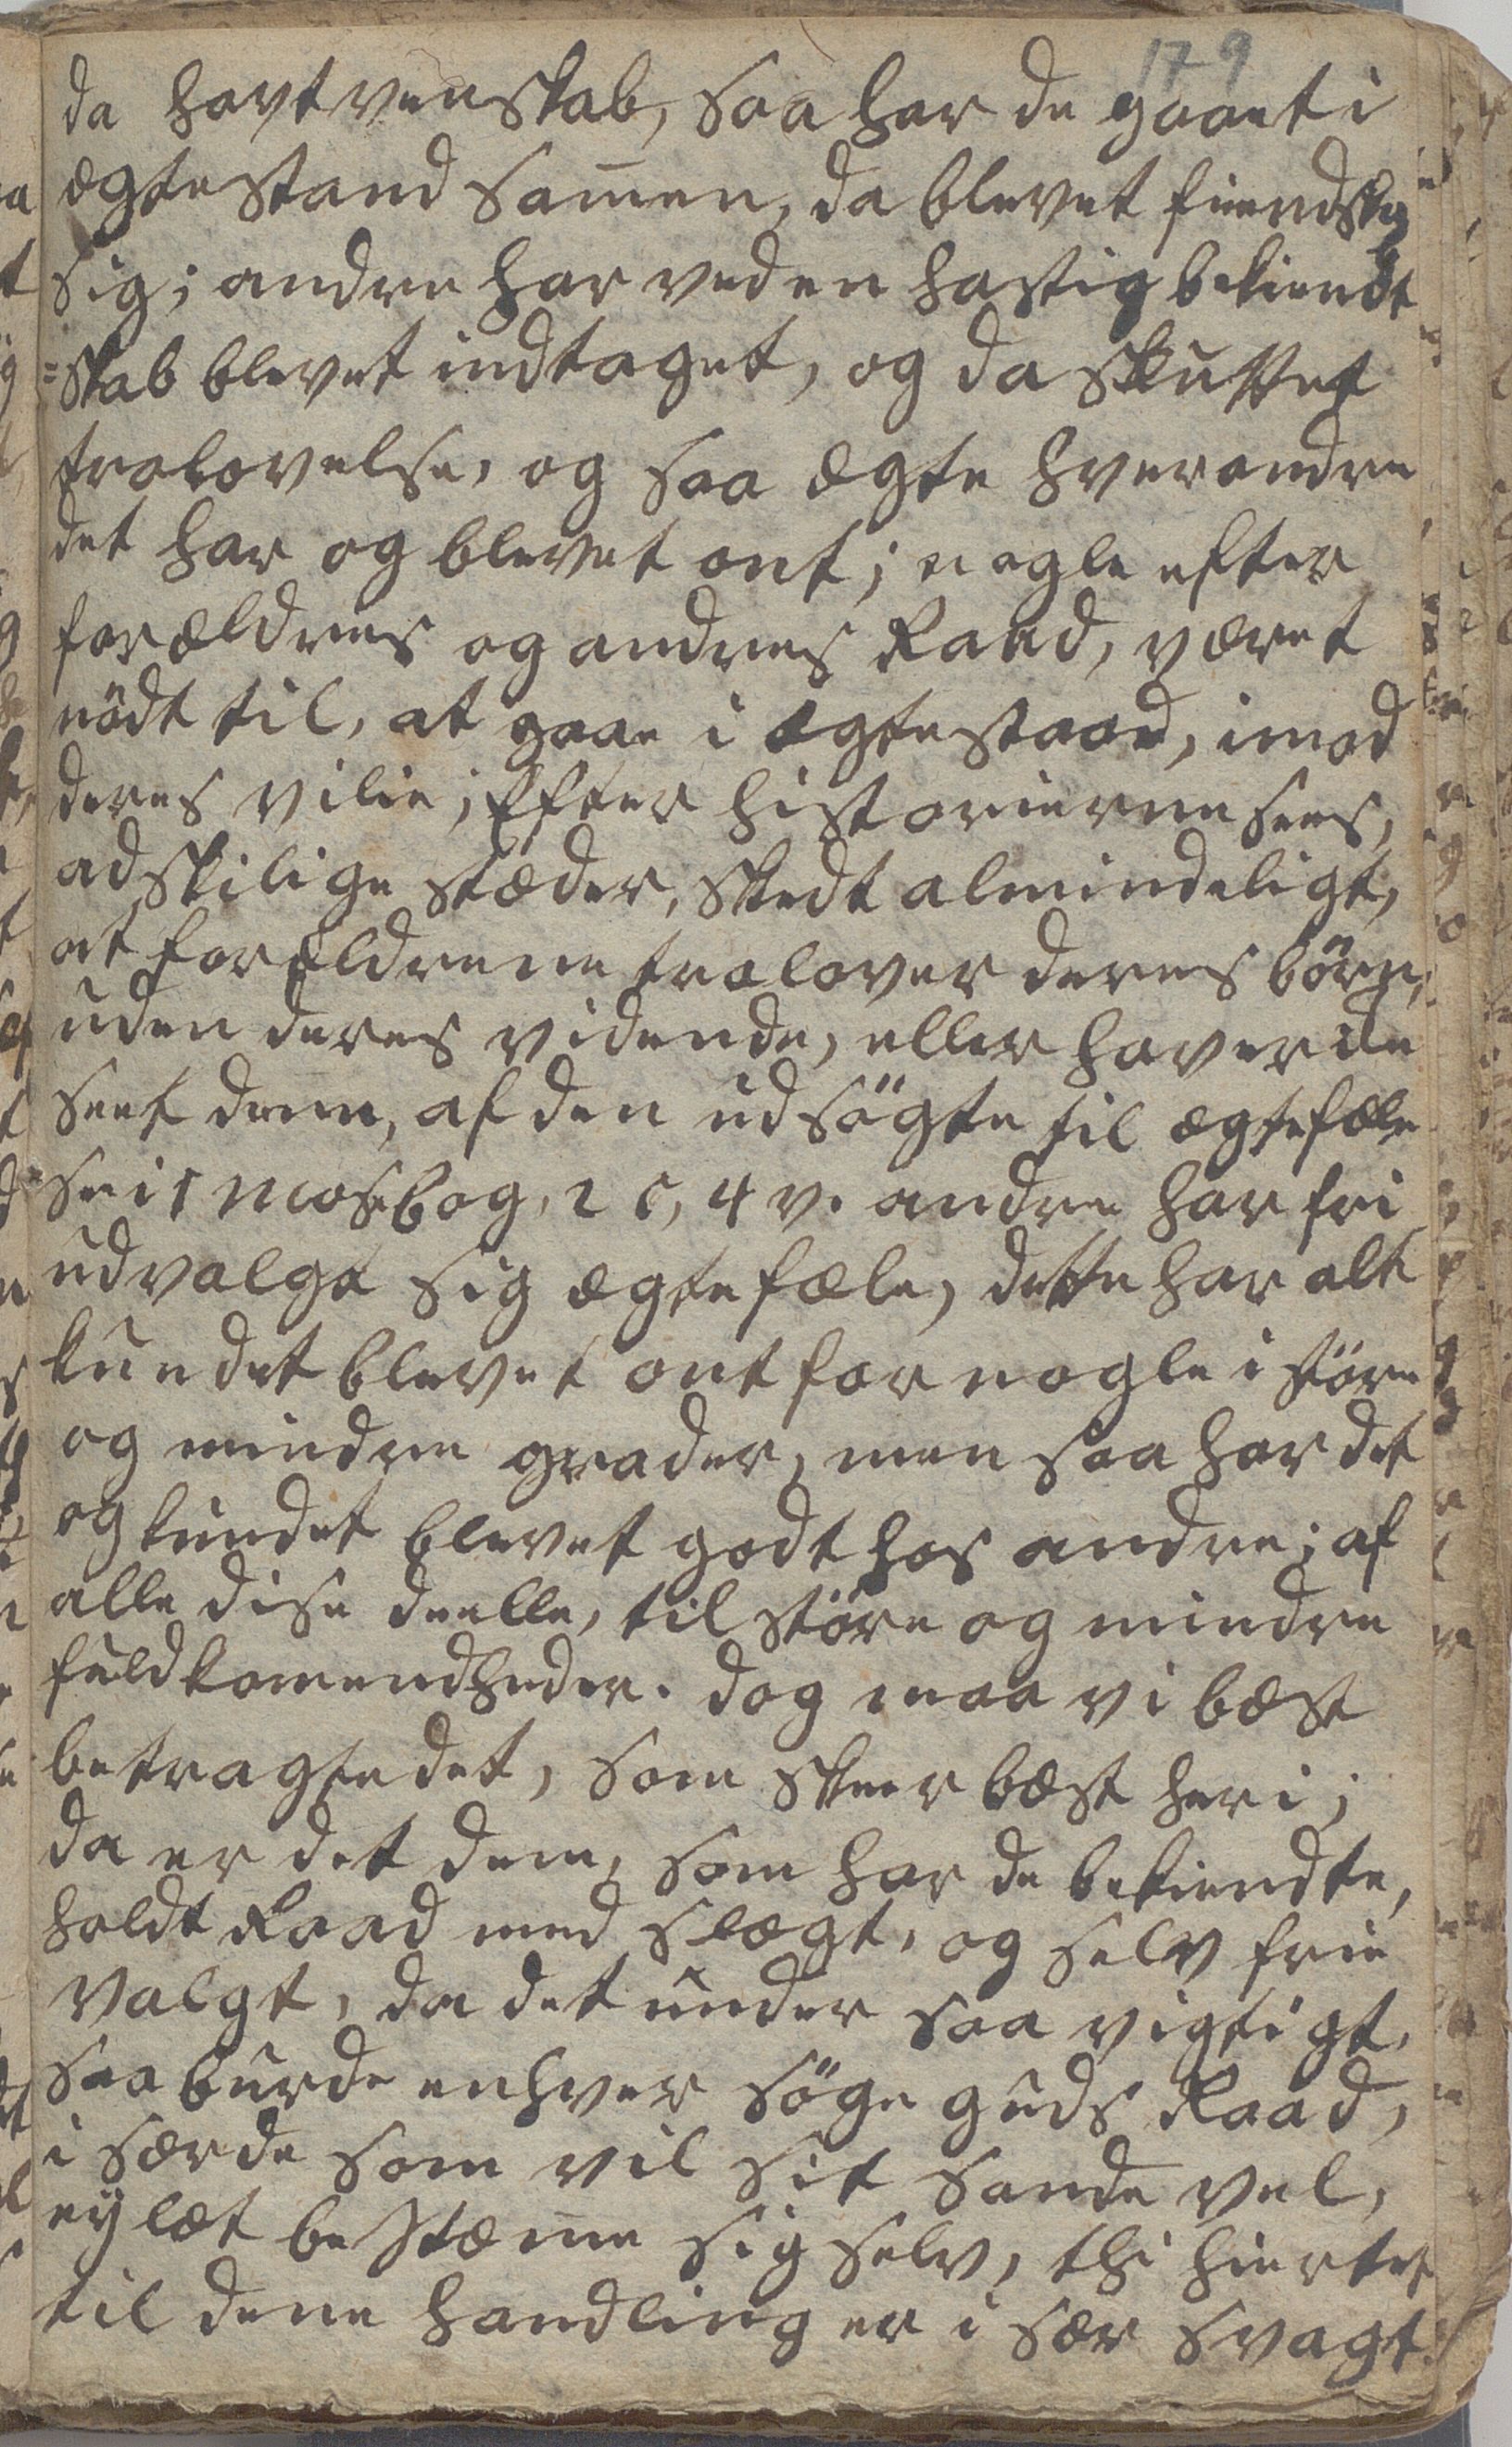 179
da havt venskab, saa har de gaaet i
ægtestand samen, da blevet fiendska
sig; andre har ved en hastig bekiendt
=skab blevet indtaget, og da sluttet
trolovelse, og saa ægte hverandre
det har og blevet ont; nogle efter
forældres og andres Raad, været
nödt til, at gaae i ægtestand, imod
deres vilie; Efter historierne sees,
adskilige stæder, skedt almindeligt,
at forældrene trolover deres börn,
uden deres vidende, eller haver de
seet dem, af den udsögte til ægtefæle
se i 1 Mosebog, 2 C, 4 v. andre har fri
udvalgt sig ægtefæle, dette har alt
kundet blevet ont for nogle i störe
og mindre grader, men saa har det
og kundet blevet godt hos andre; af
alle dise deelle, til störe og mindre
fuldkomendheder. dog maa vi bæst
betragte det, som skeer bæst heri;
da er det dem, som har de bekiendte,
holdt Raad med slægt, og selv frie
valgt, da det under saa vigtigt,
saa burde enhver söge guds Raad,
i særde som vil sit sande vel,
ey læt bestæme sig selv, thi hiertet
til dene handling er i sær svagt.